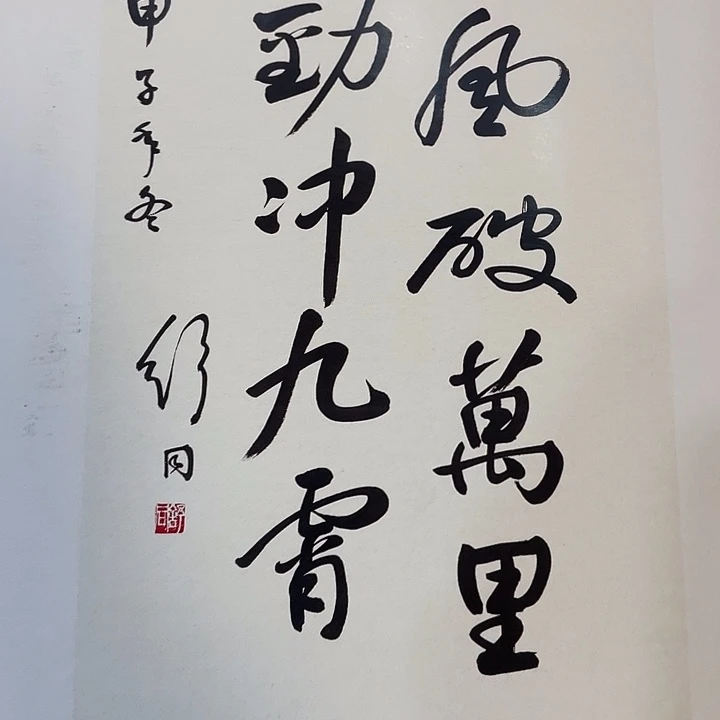 風破萬里
勁冲九霄
甲子年冬
舒同
舒同